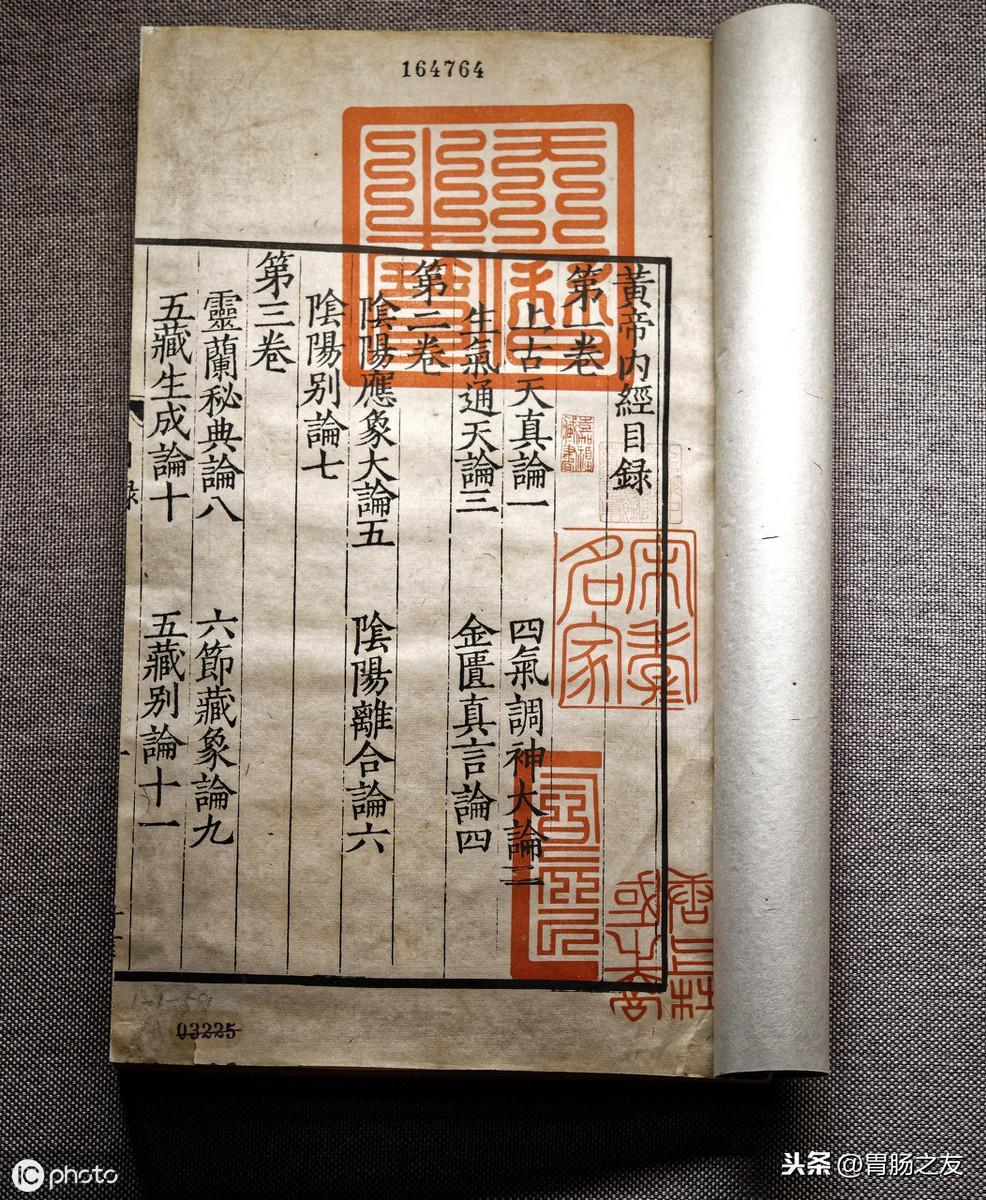 164764
黃帝内經目録
第一卷
上古天真論一 四氣調神大論二
生氣通天論三 金匱真言論四
第二卷
陰陽應象大論五 陰陽離合論六
陰陽别論七
第三卷
靈蘭秘典論八 六節藏象論九
五藏生成論十 五藏别論十一
03225
iC photo
头条 @胃肠之友